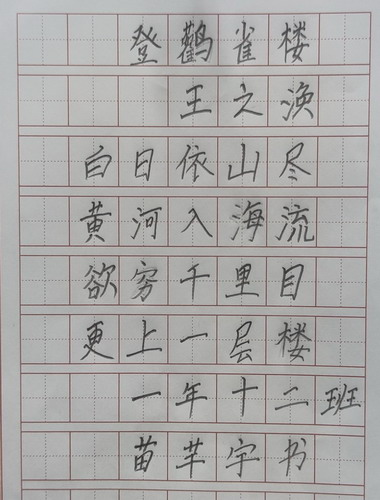 登鹳雀楼
王之涣
白日依山尽
黄河入海流
欲穷千里目
更上一层楼
一年十二班
苗芊宇书